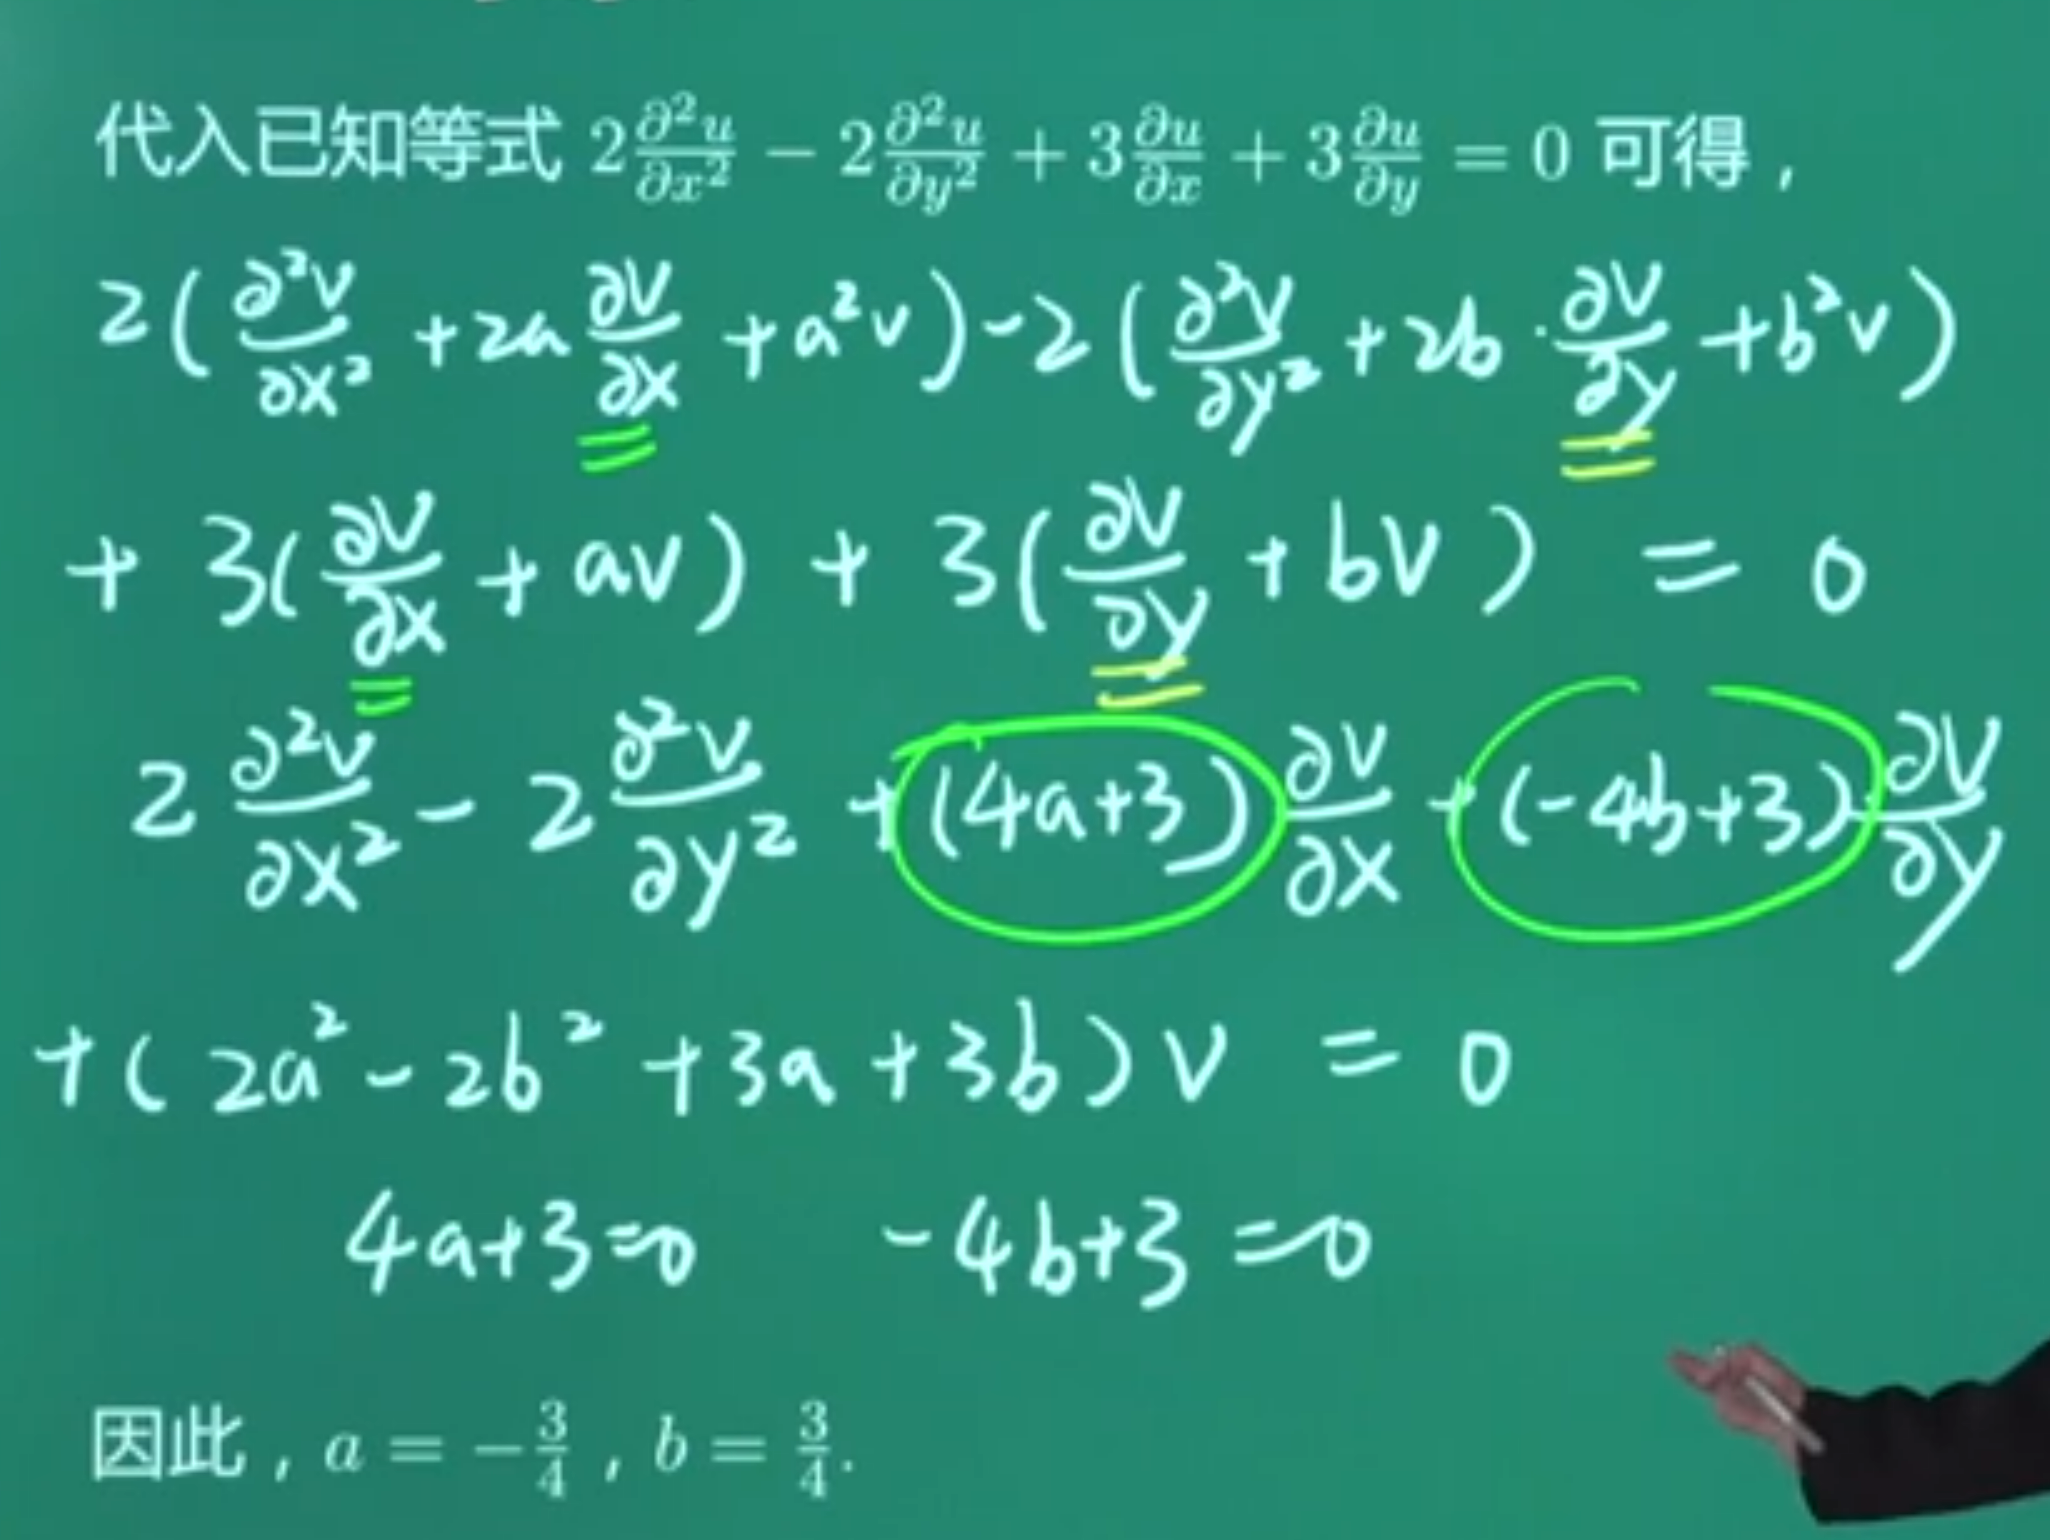 代入已知等式 $2\frac{\partial^2 u}{\partial x^2} - 2\frac{\partial^2 u}{\partial y^2} + 3\frac{\partial u}{\partial x} + 3\frac{\partial u}{\partial y} = 0$ 可得，
$2(\frac{\partial^2 v}{\partial x^2} + 2a\frac{\partial v}{\partial x} + a^2 v) - 2(\frac{\partial^2 v}{\partial y^2} + 2b \cdot \frac{\partial v}{\partial y} + b^2 v)$
$+ 3(\frac{\partial v}{\partial x} + av) + 3(\frac{\partial v}{\partial y} + bv) = 0$
$2\frac{\partial^2 v}{\partial x^2} - 2\frac{\partial^2 v}{\partial y^2} + (4a+3)\frac{\partial v}{\partial x} + (-4b+3)\frac{\partial v}{\partial y}$
$+ (2a^2 - 2b^2 + 3a + 3b)v = 0$
$4a+3=0 \quad -4b+3=0$
因此，$a = -\frac{3}{4}$，$b = \frac{3}{4}$.